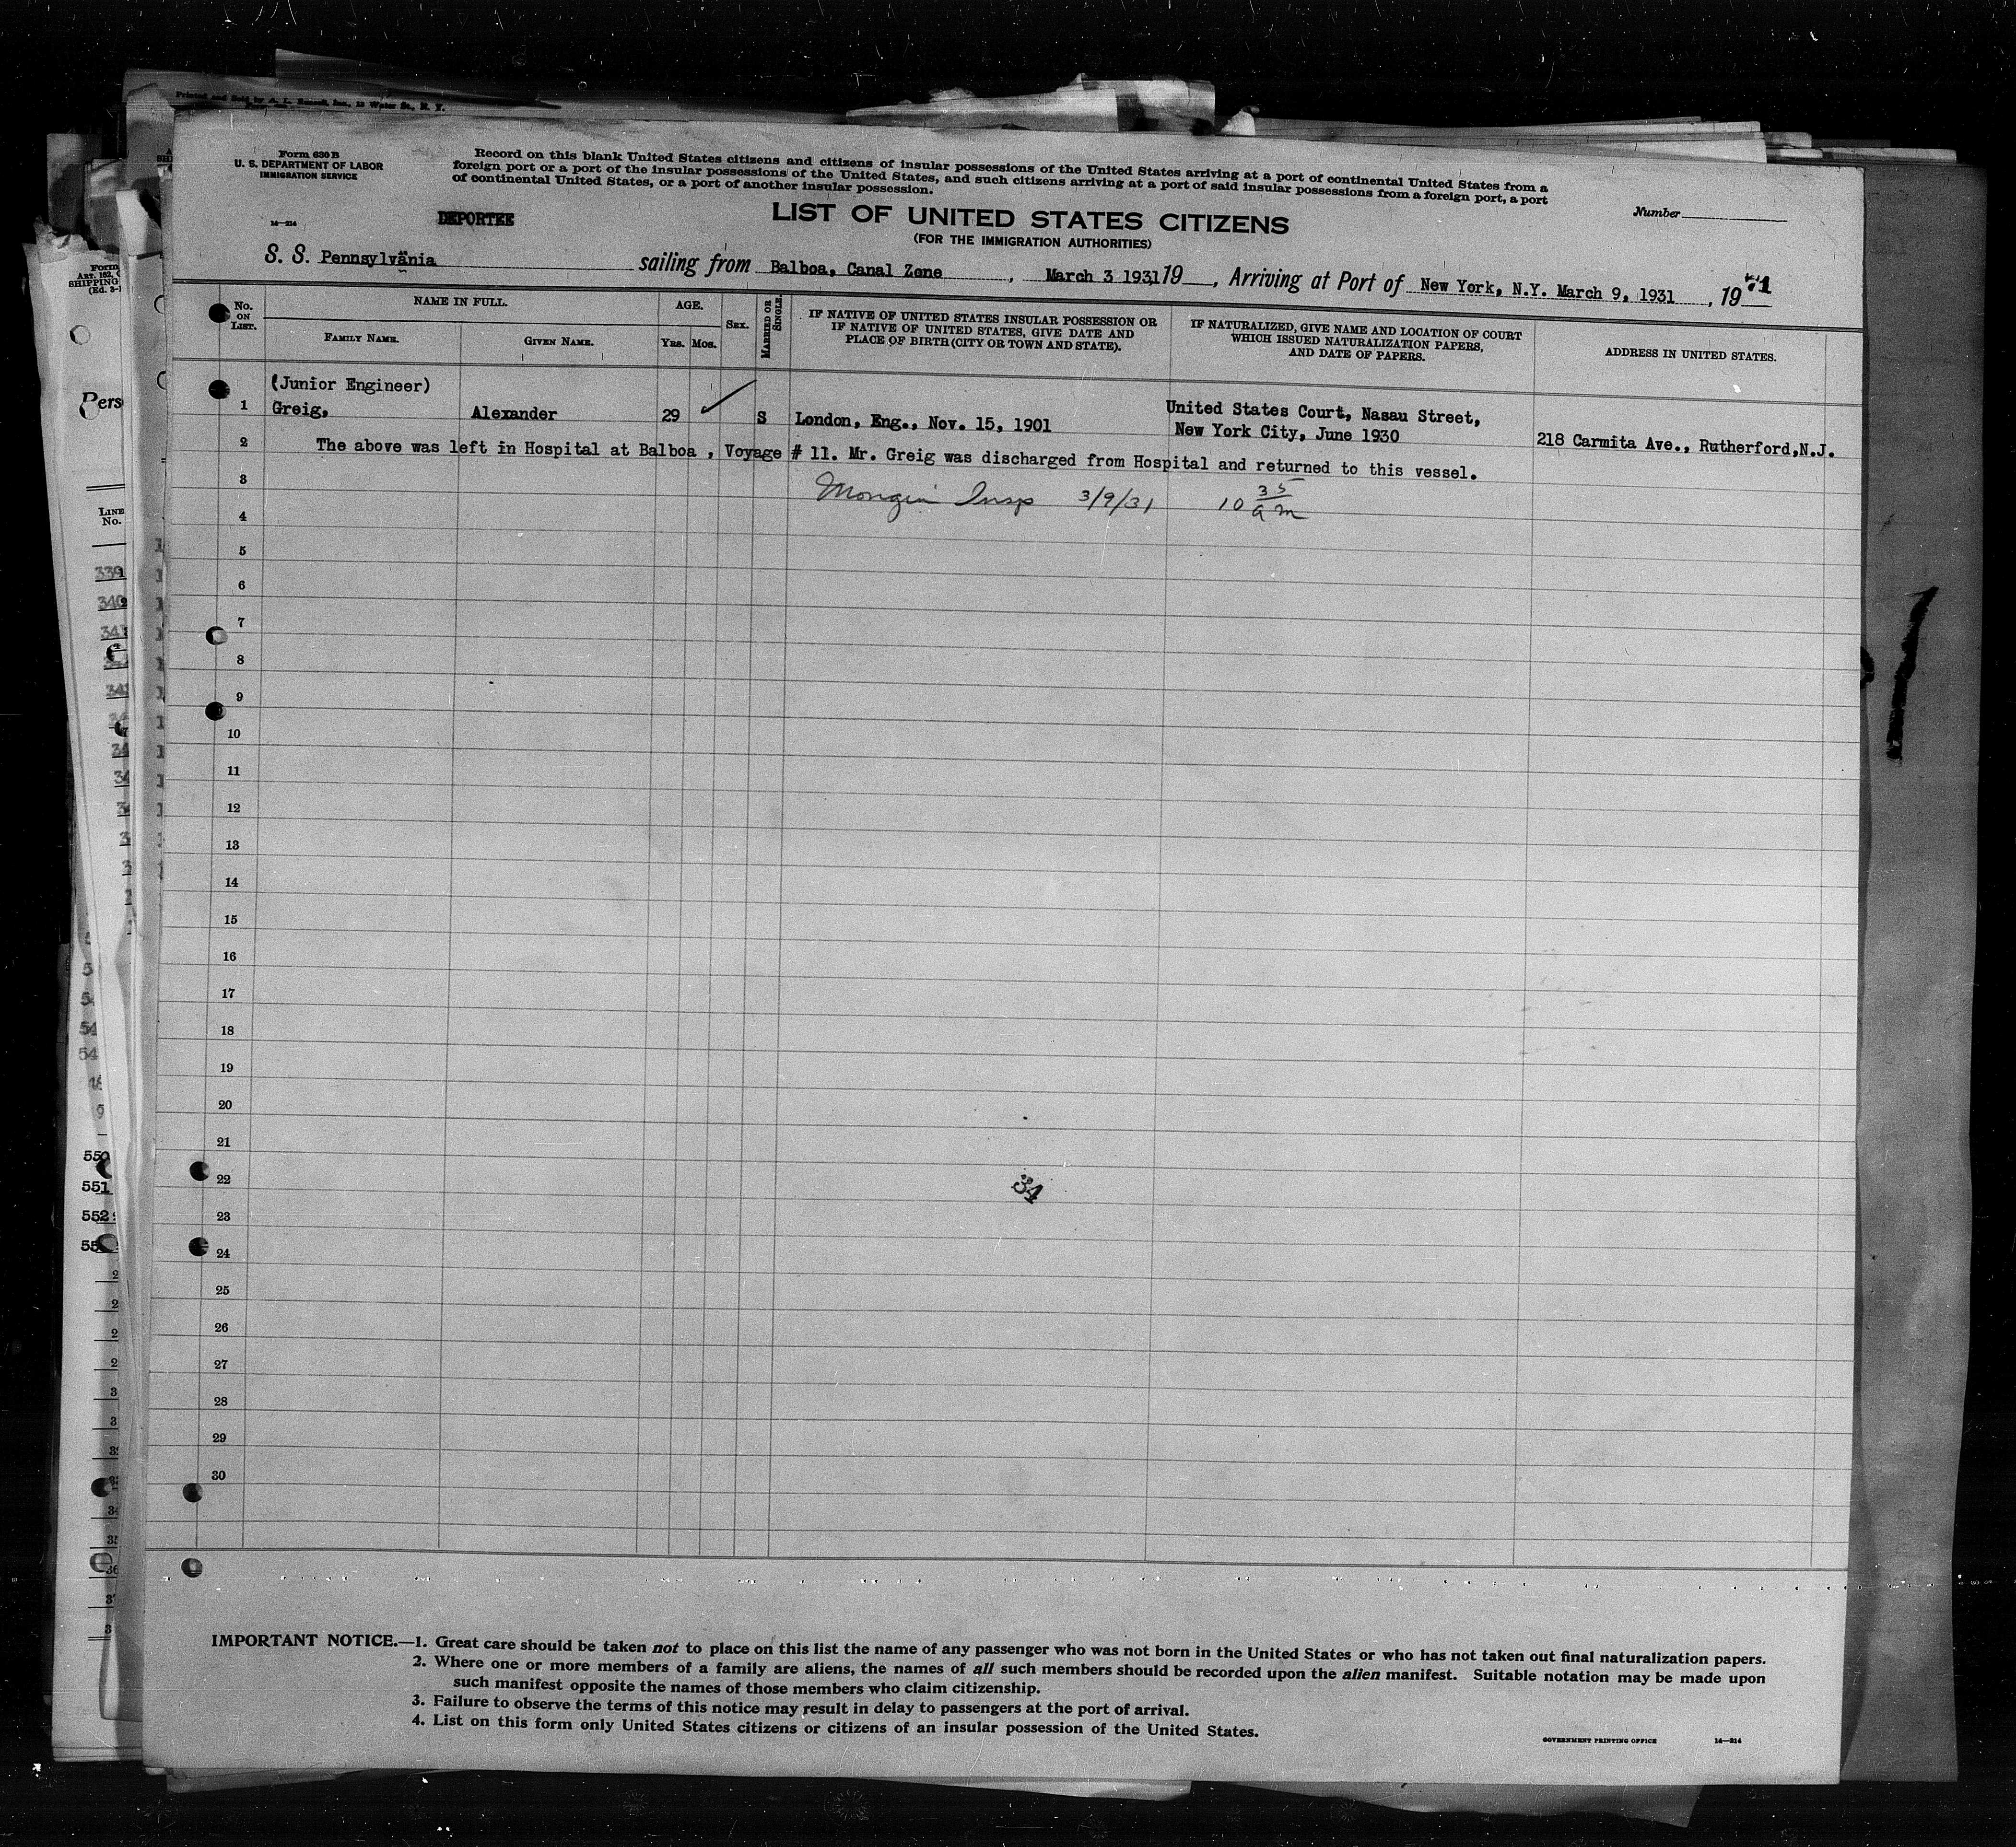 Printed and Sold by A. L. Russell, Inc., 12 Water St., N. Y.
Form 630 B
U. S. DEPARTMENT OF LABOR
IMMIGRATION SERVICE
Record on this blank United States citizens and citizens of insular possessions of the United States arriving at a port of continental United States from a
foreign port or a port of the insular possessions of the United States, and such citizens arriving at a port of said insular possessions from a foreign port, a port
of continental United States, or a port of another insular possession.
14—214
DEPORTEE
LIST OF UNITED STATES CITIZENS
(FOR THE IMMIGRATION AUTHORITIES)
Number
S. S. Pennsylvania sailing from Balboa, Canal Zone , March 3 1931, 19 , Arriving at Port of New York, N.Y. March 9, 1931 , 19
No. ON LIST.
NAME IN FULL.
FAMILY NAME.
GIVEN NAME.
AGE.
YRS. MOS.
SEX.
MARRIED OR SINGLE.
IF NATIVE OF UNITED STATES INSULAR POSSESSION OR
IF NATIVE OF UNITED STATES, GIVE DATE AND
PLACE OF BIRTH (CITY OR TOWN AND STATE).
IF NATURALIZED, GIVE NAME AND LOCATION OF COURT
WHICH ISSUED NATURALIZATION PAPERS,
AND DATE OF PAPERS.
ADDRESS IN UNITED STATES.
(Junior Engineer)
1 Greig, Alexander 29 S London, Eng., Nov. 15, 1901 United States Court, Nasau Street,
New York City, June 1930 218 Carmita Ave., Rutherford,N.J.
2 The above was left in Hospital at Balboa , Voyage # 11. Mr. Greig was discharged from Hospital and returned to this vessel.
3 Insp 3/9/31 10 35 am
4
5
6
7
8
9
10
11
12
13
14
15
16
17
18
19
20
21
22
34
23
24
25
26
27
28
29
30
IMPORTANT NOTICE.—1. Great care should be taken not to place on this list the name of any passenger who was not born in the United States or who has not taken out final naturalization papers.
2. Where one or more members of a family are aliens, the names of all such members should be recorded upon the alien manifest. Suitable notation may be made upon
such manifest opposite the names of those members who claim citizenship.
3. Failure to observe the terms of this notice may result in delay to passengers at the port of arrival.
4. List on this form only United States citizens or citizens of an insular possession of the United States.
GOVERNMENT PRINTING OFFICE 14—214
LINE
No.
550
551
552